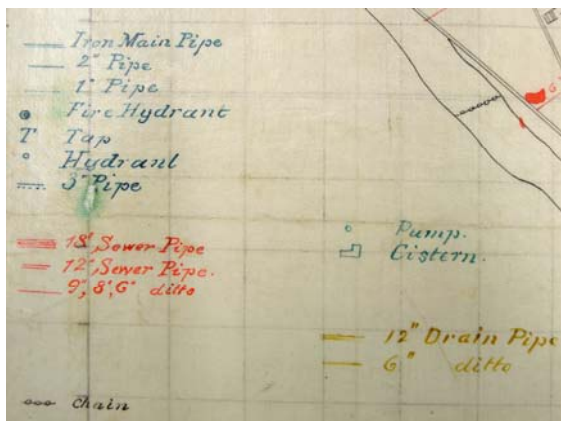 Iron Main Pipe
2" Pipe
1" Pipe
Fire Hydrant
T Tap
Hydrant
3" Pipe
18", Sewer Pipe
12", Sewer Pipe.
9", 8", 6" ditto
Pump.
Cistern.
12" Drain Pipe
6" ditto
chain